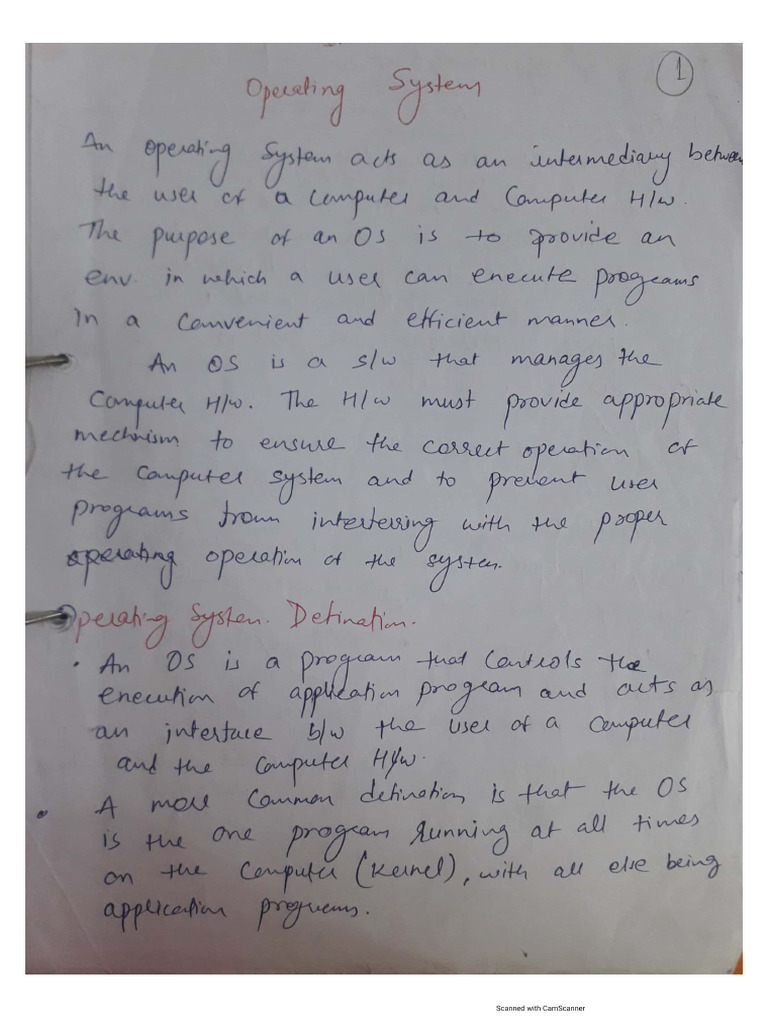 1
Operating System
An operating System acts as an intermediary between
the user of a computer and Computer H/w.
The purpose of an OS is to provide an
env. in which a user can execute programs
in a convenient and efficient manner.
An OS is a s/w that manages the
Computer H/w. The H/w must provide appropriate
mechnism to ensure the correct operation of
the computer system and to prevent user
programs from interferring with the proper
operating operation of the system.
Operating System. Defination.
• An OS is a program that controls the
execution of application program and acts as
an interface b/w the user of a computer
and the computer H/w.
• A more common defination is that the OS
is the one program running at all times
on the computer (kernel), with all else being
application programs.
Scanned with CamScanner